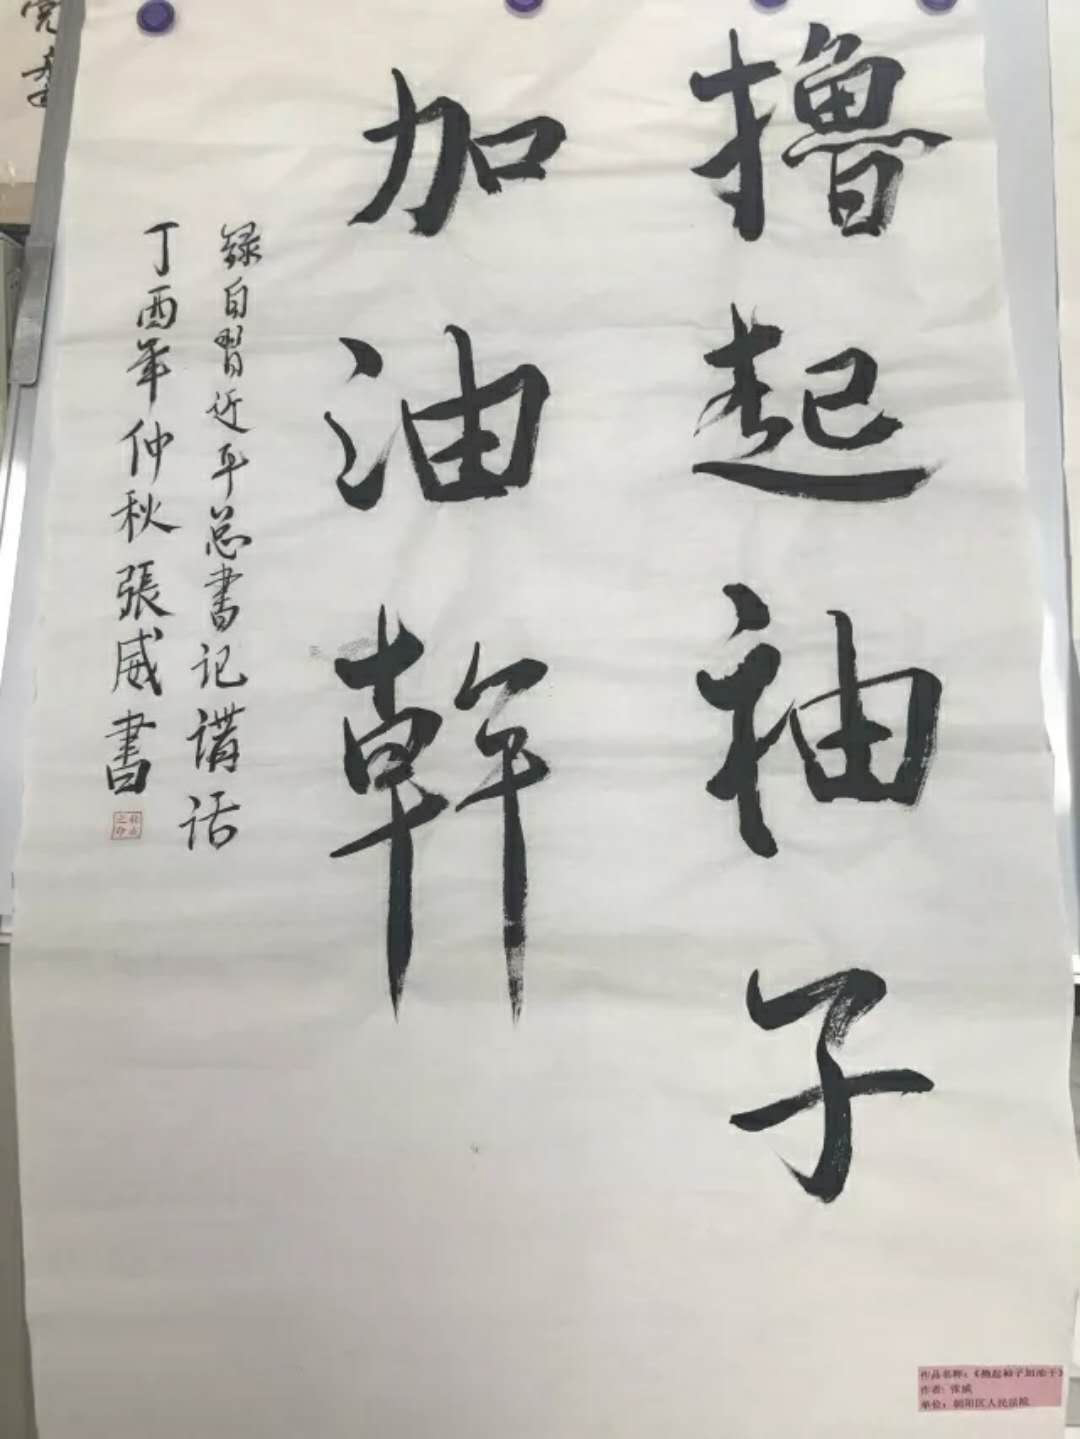 撸起袖子
加油幹
録自習近平总書记講话
丁酉年仲秋張威書
作品名称：《撸起袖子加油干》
作者：张威
单位：朝阳区人民法院